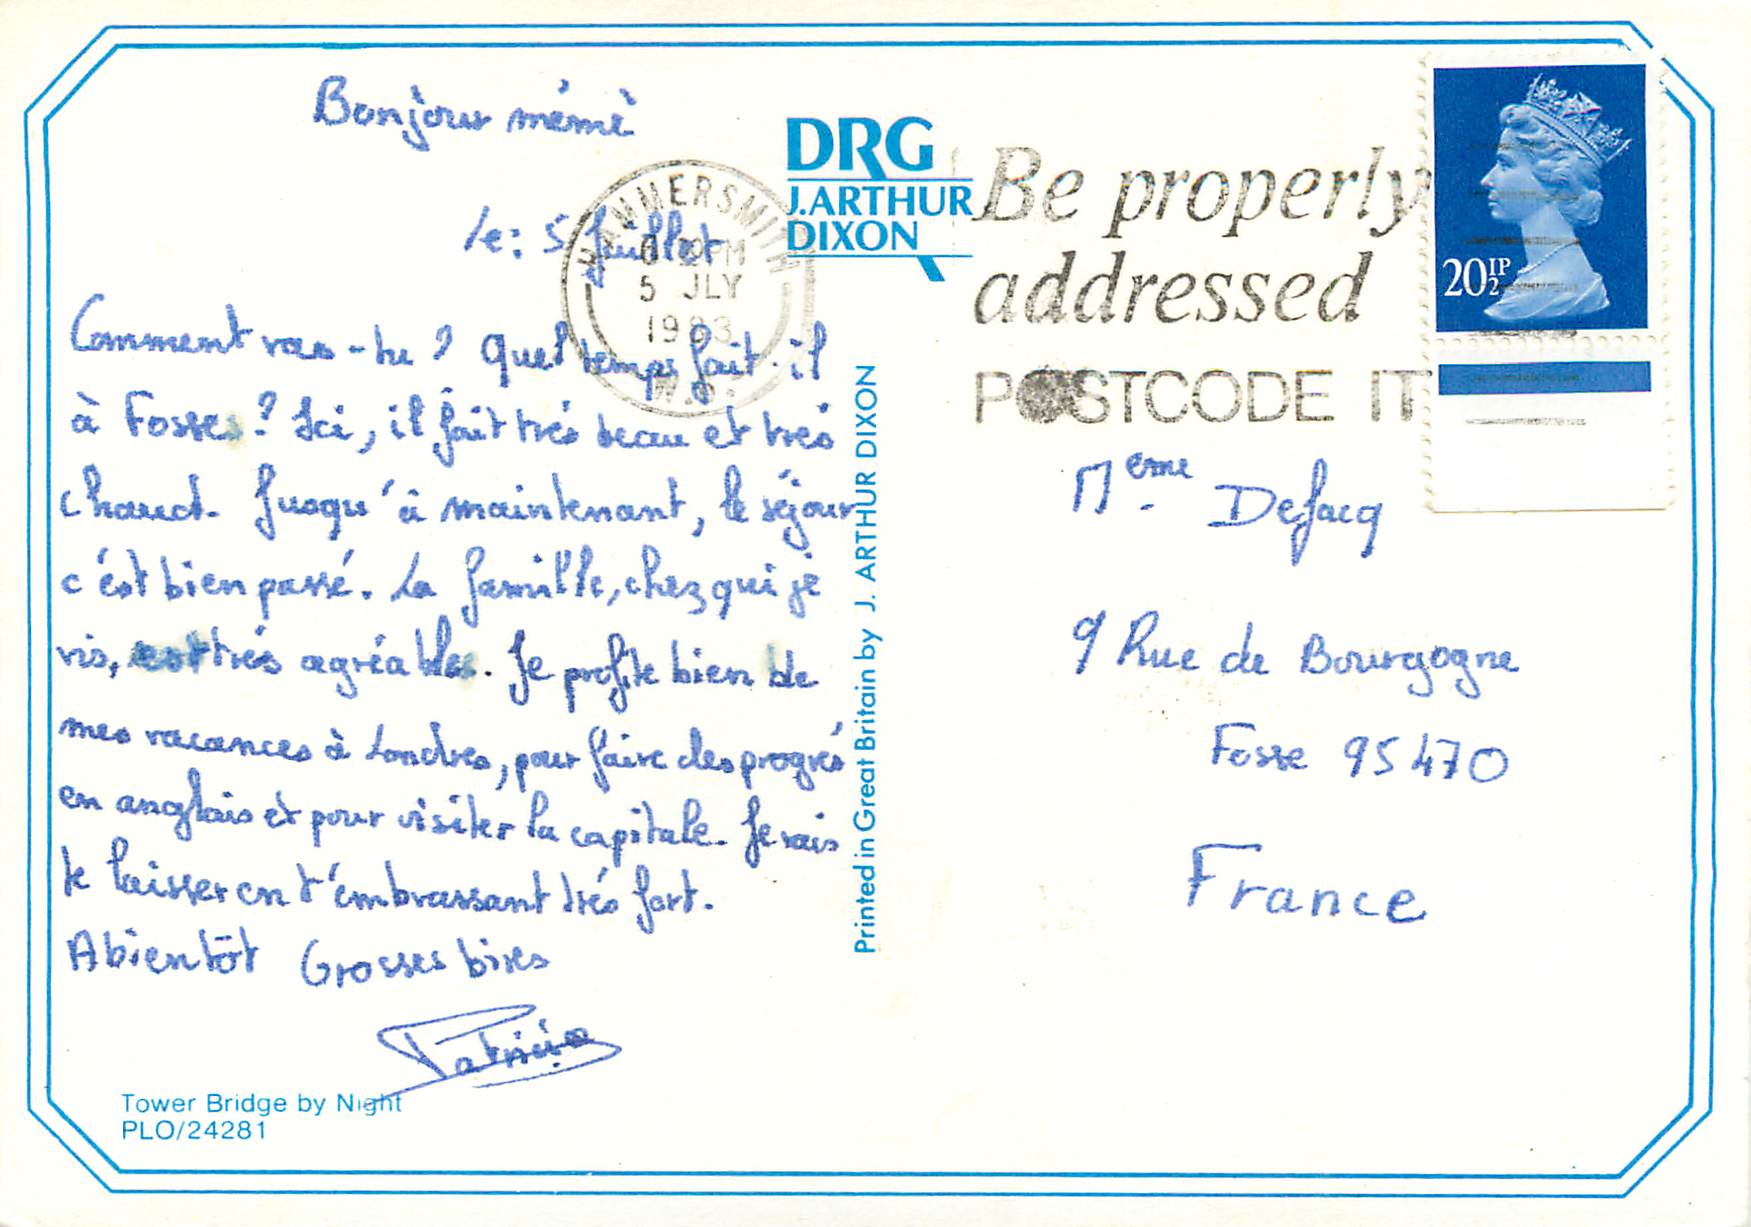 Bonjour mémè
le: 5 juillet
Comment vas-tu ? Quel temps fait-il
à Fosses ? Ici, il fait trés beau et trés
chaud. Jusqu'à maintenant, le séjour
c'est bien passé. La famille, chez qui je
vis, est trés agréable. Je profite bien de
mes vacances à Londres, pour faire des progrés
en anglais et pour visiter la capitale. Je vais
te laisser en t'embrassant trés fort.
A bientôt Grosses bises
Patricia
Tower Bridge by Night
PLO/24281
DRG
J.ARTHUR
DIXON
Printed in Great Britain by J. ARTHUR DIXON
HAMMERSMITH
PM
5 JLY
1983
Be properly
addressed
POSTCODE IT
20½P
Meme Defacq
9 Rue de Bourgogne
Fosse 95470
France